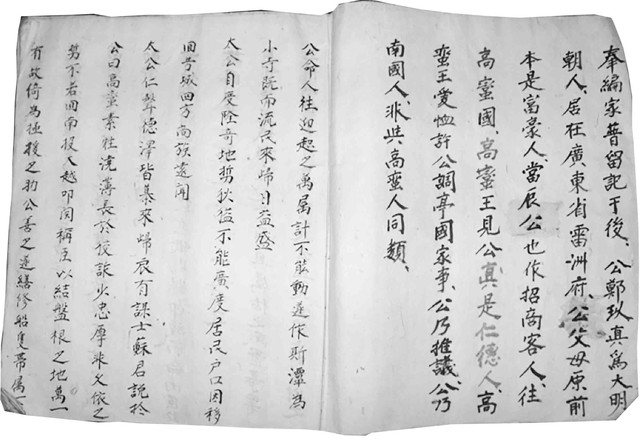 奉編家普留記于後、公鄭玖真爲大明
朝人、居在廣東省雷洲府、公父母原前
本是富豪人、當辰公也作招商客人、往
高蠻國、高蠻王見公真是仁德人、高
蠻王愛恤許公調亭國家事、公乃推議、公乃
南國人、非共高蛮人同類、
公命人往迎起之萬属計不敢動遂作斯潭為
小寺既而流民來歸日益盛
太公自度隆奇地势狄益不能廣度居民戶口因移
回芳城四方商族遠聞
太公仁聲德澤皆慕來歸有謀士蘇君説於
公曰高蛮素性澆薄長於狡詐少忠厚非久依之
势不若回南投入越叩闗稱臣以結盤根之地萬一
有故倚為極援之助公善之遂繕修船隻帶属一